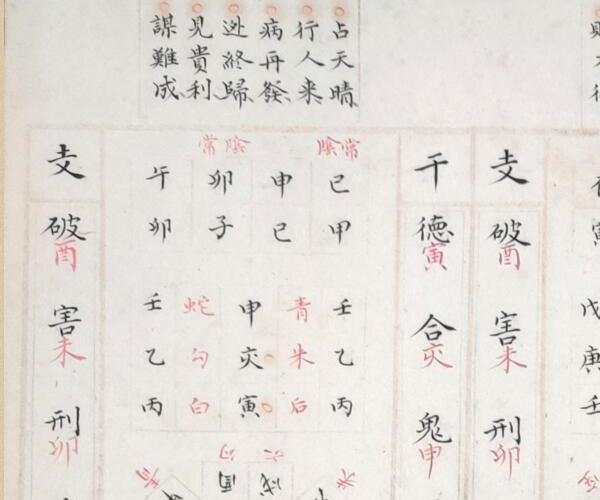 占天晴
行人来
病再發
逃終歸
見貴利
謀難成
支
破酉
害未
刑卯
干
德寅
合亥
鬼申
常陰
陰常
巳甲
申巳
卯子
午卯
壬乙丙
青朱后
申亥寅
蛇勾白
壬乙丙
支
破酉
害未
刑卯